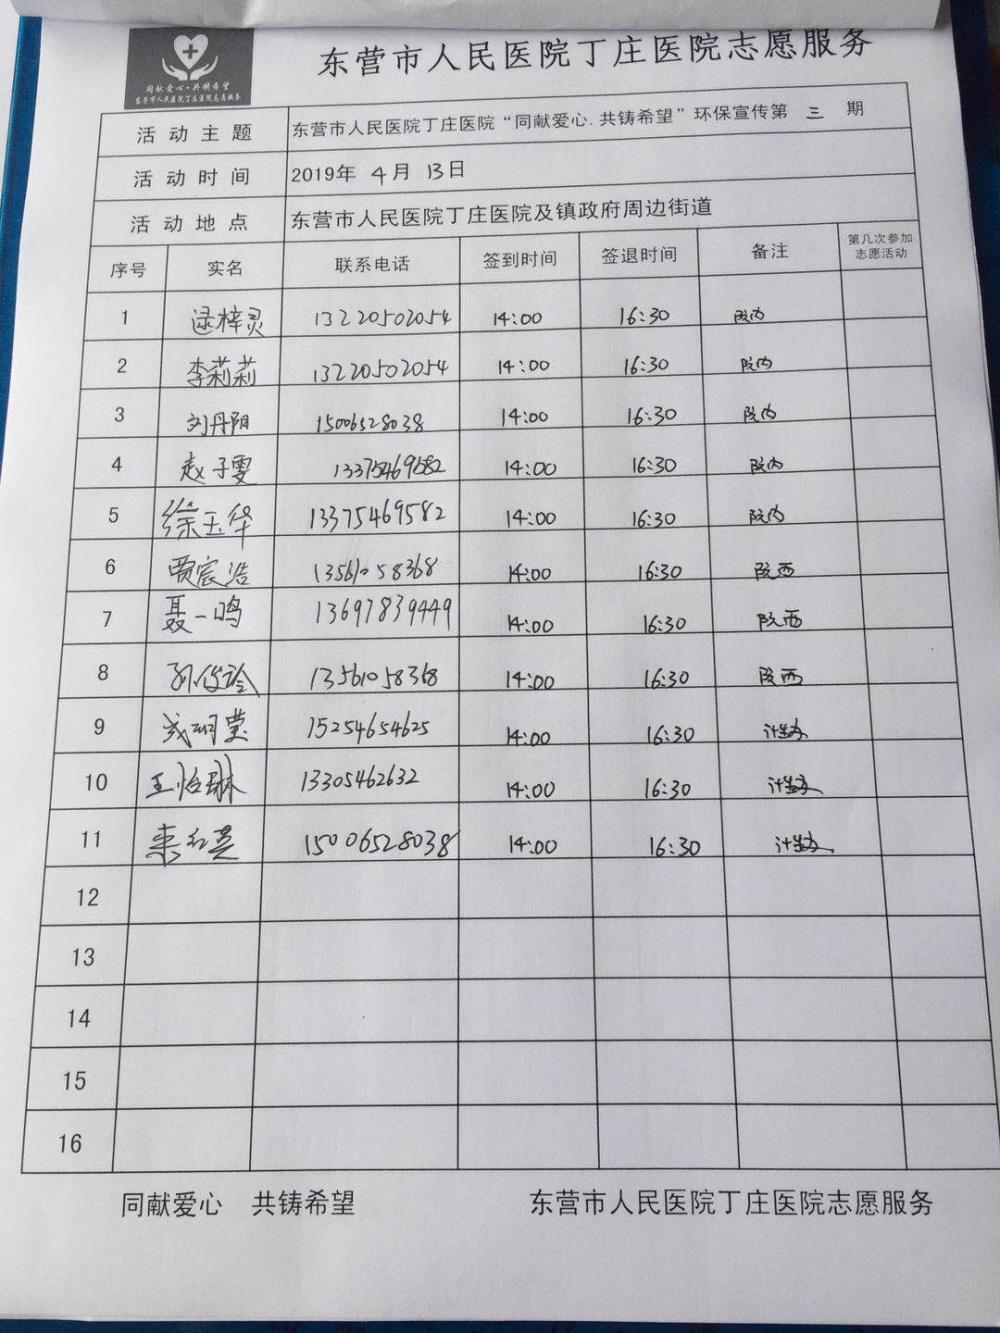 同献爱心·共铸希望
东营市人民医院丁庄医院志愿服务
东营市人民医院丁庄医院志愿服务
活动主题 东营市人民医院丁庄医院“同献爱心.共铸希望”环保宣传第 三 期
活动时间 2019年 4月 13日
活动地点 东营市人民医院丁庄医院及镇政府周边街道
序号 实名 联系电话 签到时间 签退时间 备注 第几次参加志愿活动
1 逯梓灵 13220502054 14:00 16:30 院内
2 李莉莉 13220502054 14:00 16:30 院内
3 刘丹阳 15006528038 14:00 16:30 院内
4 赵子雯 13375469582 14:00 16:30 院内
5 徐玉华 13375469582 14:00 16:30 院内
6 贾宸浩 13561058368 14:00 16:30 院西
7 聂一鸣 13697839449 14:00 16:30 院西
8 13561058368 14:00 16:30 院西
9 15254654625 14:00 16:30 计生办
10 王怡琳 13305462632 14:00 16:30 计生办
11 15006528038 14:00 16:30 计生办
12
13
14
15
16
同献爱心 共铸希望 东营市人民医院丁庄医院志愿服务